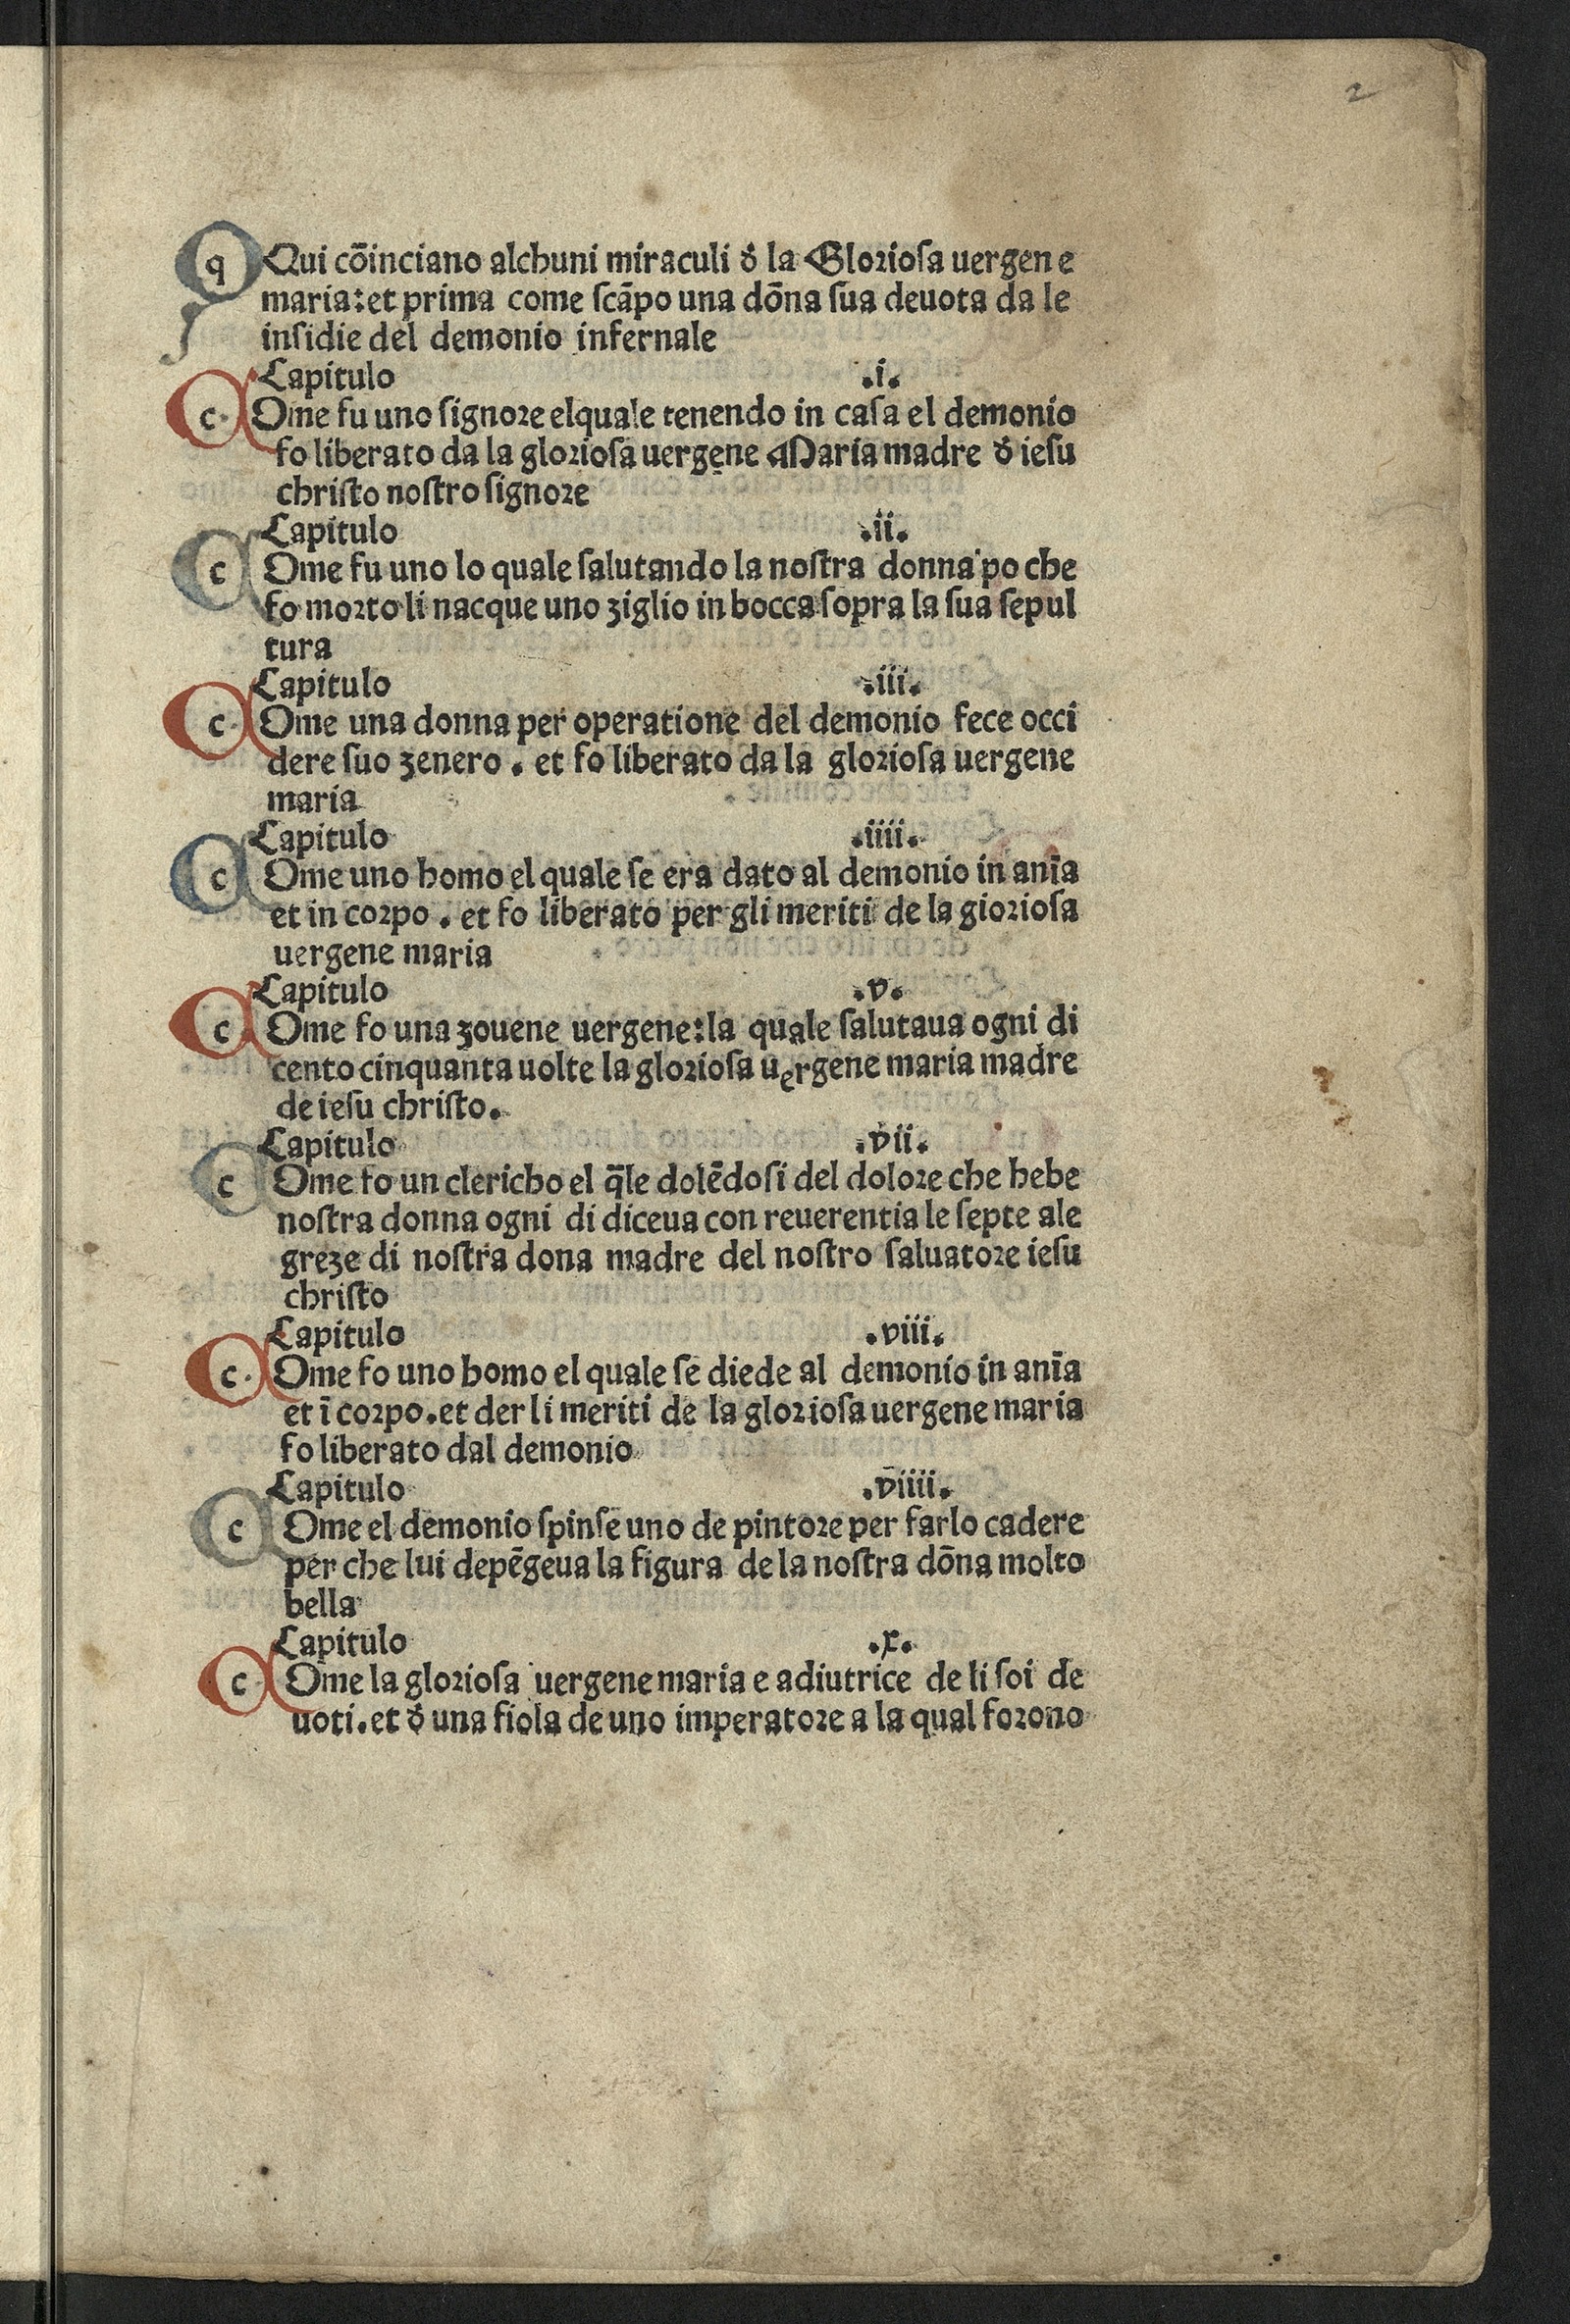 2
q Qui cōinciano alchuni miraculi đ la Gloriosa uergene
maria: et prima come scāpo una dōna sua deuota da le
insidie del demonio infernale
Capitulo .i.
c Ome fu uno signore elquale tenendo in casa el demonio
fo liberato da la gloriosa uergene Maria madre đ iesu
christo nostro signore
Capitulo .ii.
c Ome fu uno lo quale salutando la nostra donna po che
fo morto li nacque uno ziglio in bocca sopra la sua sepul
tura
Capitulo .iii.
c Ome una donna per operatione del demonio fece occi
dere suo zenero . et fo liberato da la gloriosa uergene
maria
Capitulo .iiii.
c Ome uno homo el quale se era dato al demonio in anīa
et in corpo . et fo liberato per gli meriti de la gioriosa
uergene maria
Capitulo .v.
c Ome fo una zouene uergene: la quale salutaua ogni di
cento cinquanta uolte la gloriosa uergene maria madre
de iesu christo.
Capitulo .vii.
c Ome fo un clericho el q̄le dolēdosi del dolore che hebe
nostra donna ogni di diceua con reuerentia le septe ale
greze di nostra dona madre del nostro saluatore iesu
christo
Capitulo .viii.
c Ome fo uno homo el quale se diede al demonio in anīa
et ī corpo. et der li meriti de la gloriosa uergene maria
fo liberato dal demonio
Capitulo .viiii.
c Ome el demonio spinse uno de pintore per farlo cadere
per che lui depēgeua la figura de la nostra dōna molto
bella
Capitulo .x.
c Ome la gloriosa uergene maria e adiutrice de li soi de
uoti. et đ una fiola de uno imperatore a la qual forono